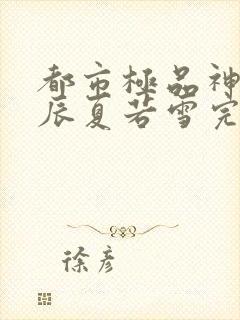 都市極品神
辰夏若雪完
徐彦